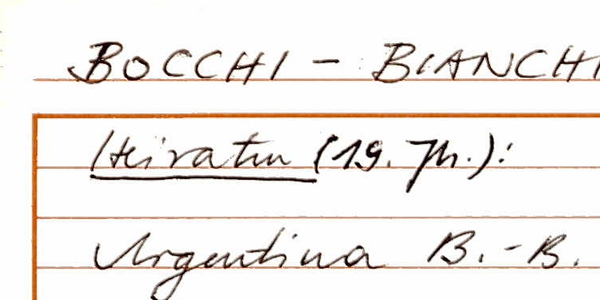 BOCCHI - BIANCHI
Heiraten (19. Jh.):
Argentina B.-B.